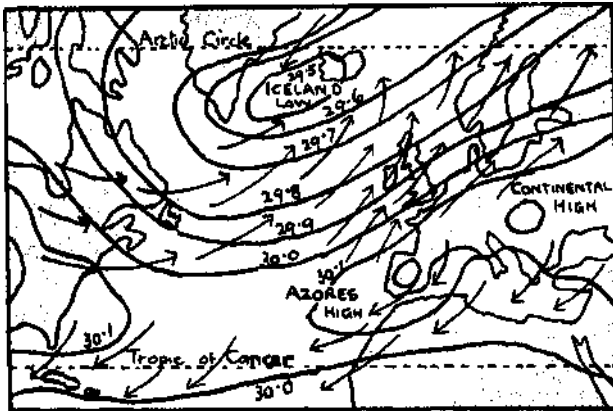 Arctic Circle
29.5
ICELAND
LOW
29.6
29.7
29.8
29.9
30.0
CONTINENTAL
HIGH
30.1
AZORES
HIGH
30.1
Tropic of Cancer
30.0